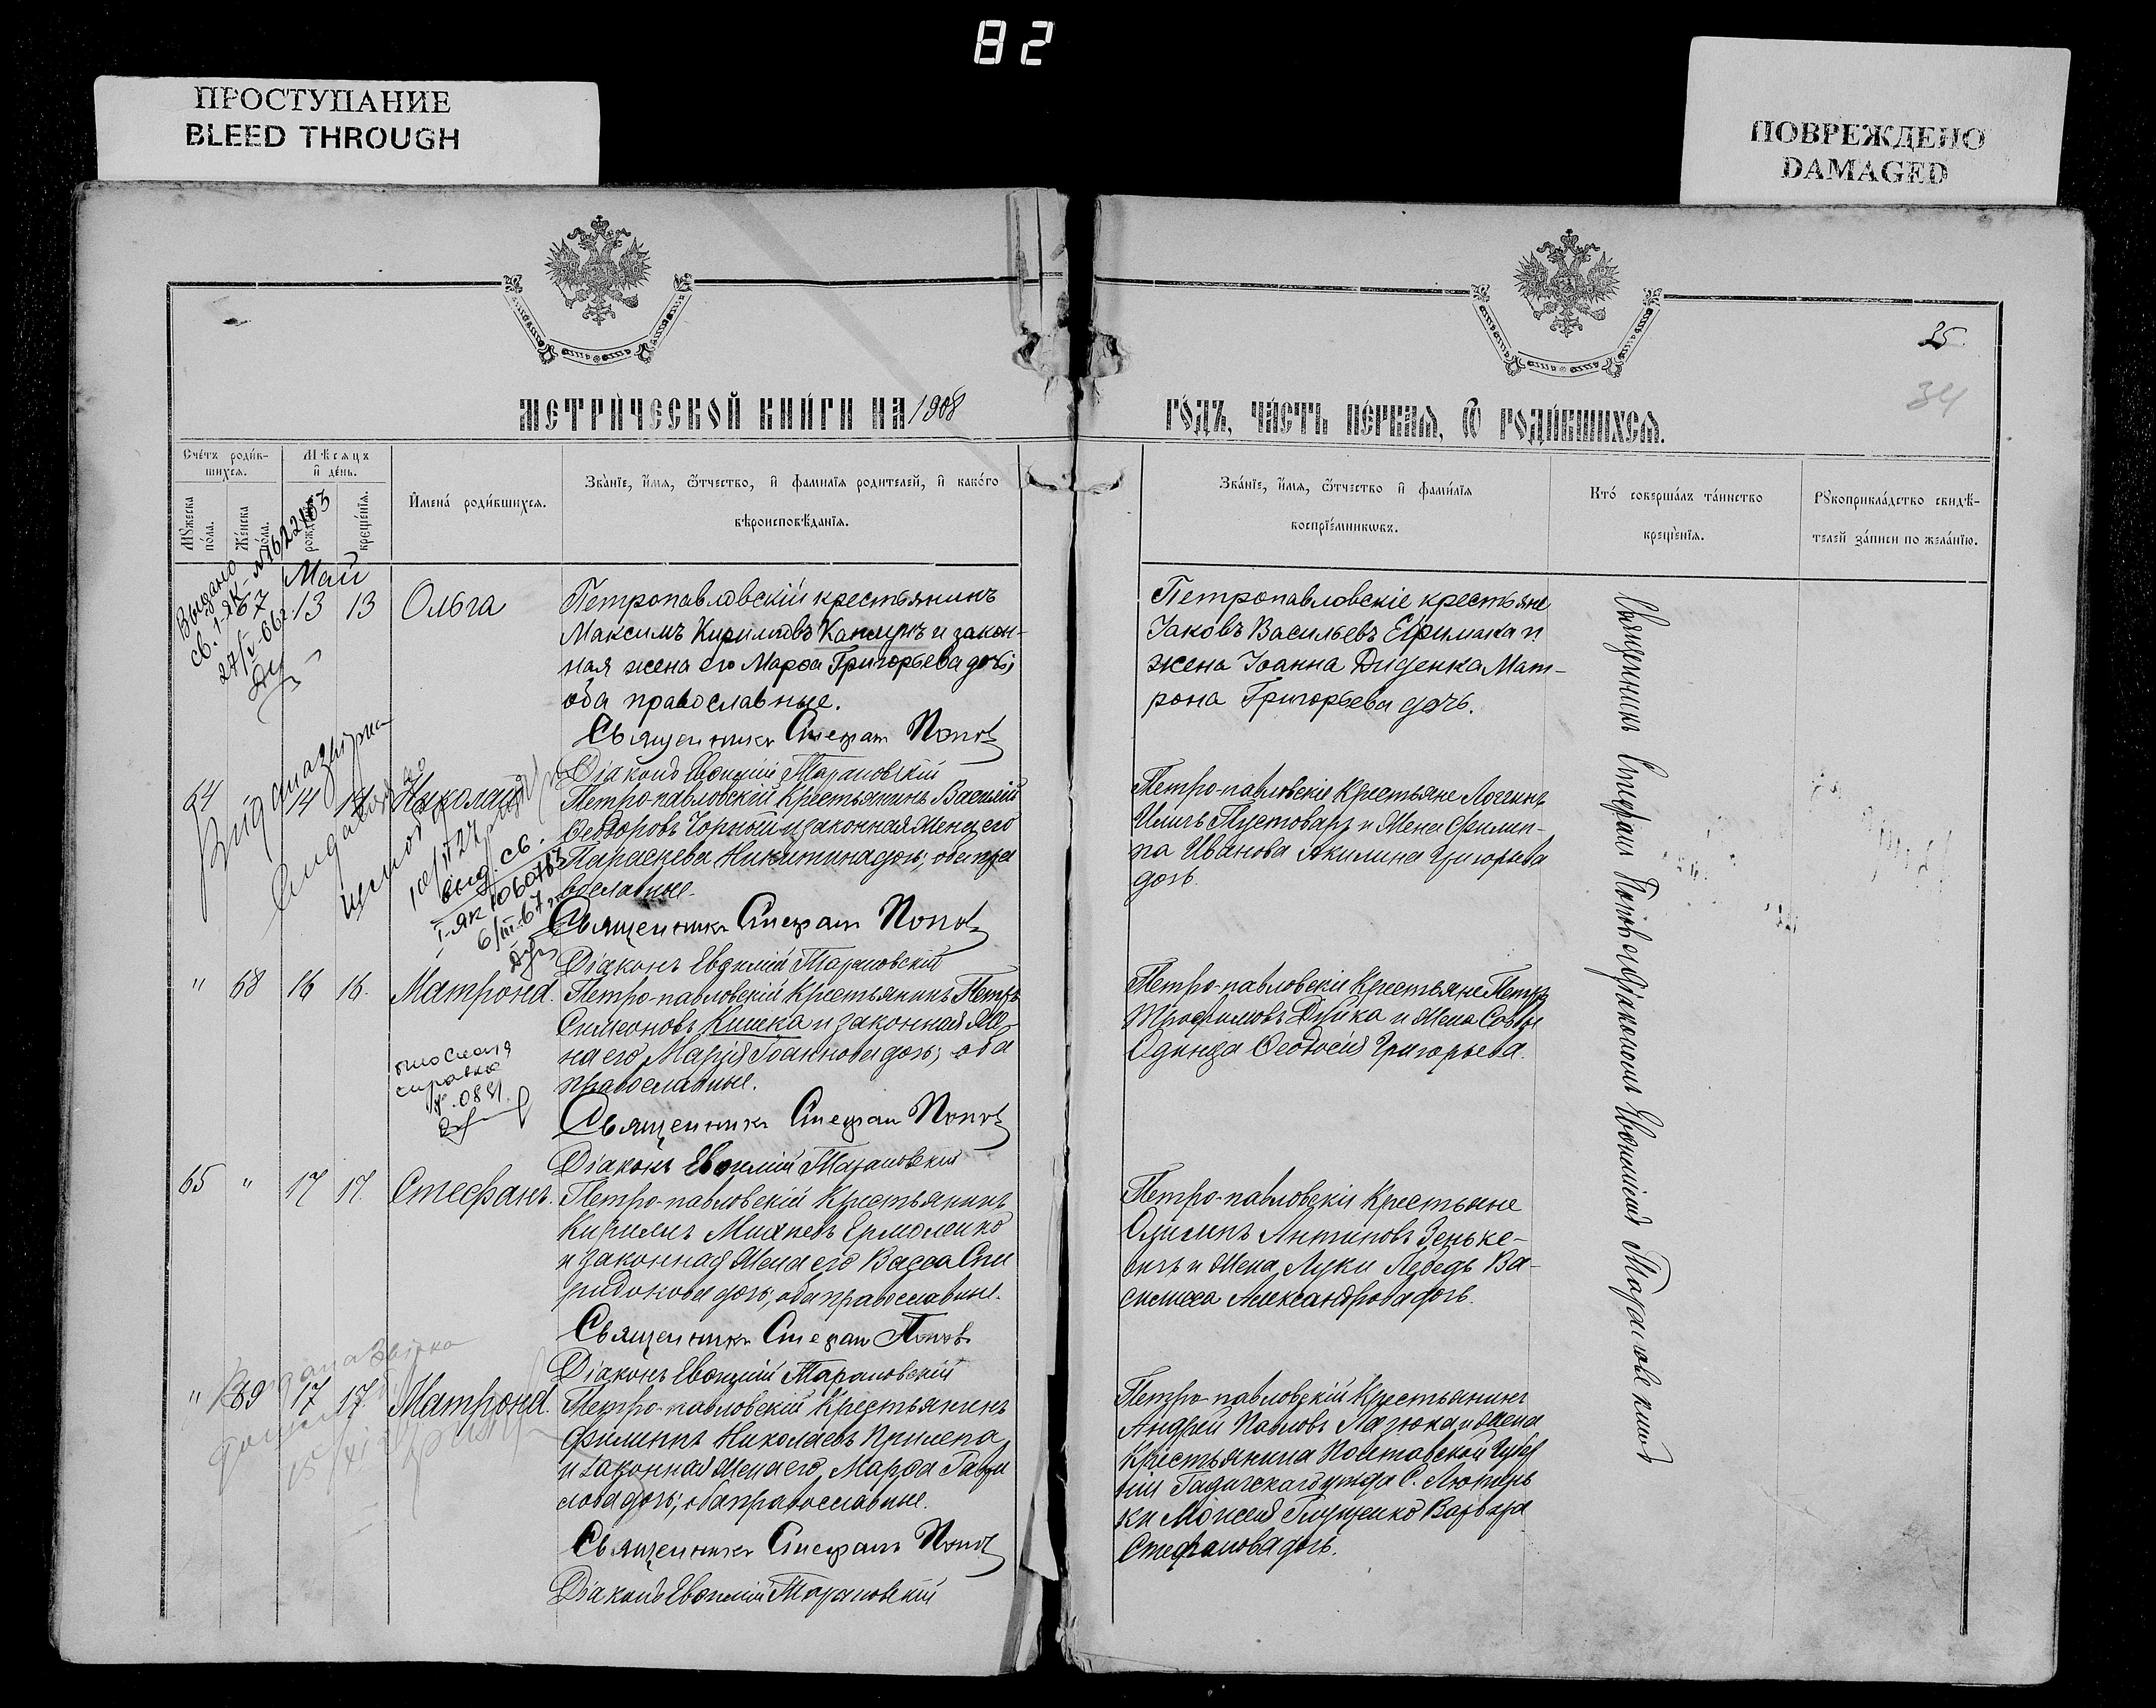 82
ПРОСТУПАНИЕ
BLEED THROUGH
ПОВРЕЖДЕНО
DAMAGED
МЕТРИ́ЧЕСКОЙ КНИ́ГИ НА 1908
ГО́ДЪ, ЧА́СТЬ ПЕ́РВАЯ, Ѿ РОДИ́ВШИХСЯ.
35
34
Сче́тъ роди́в-
шихся.
Мѣсяцъ
и҆ де́нь.
Мꙋ́жеска
по́ла.
Же́нска
по́ла.
рожде́нїя.
креще́нїѧ.
И҆мена́ роди́вшихся.
Зва́нїе, и҆́мѧ, ѻ҆́тчество, и҆ фами́лїѧ роди́телей, и҆ како́го
вѣроисповѣ́данїѧ.
Зва́нїе, и҆́мѧ, ѻ҆́тчество и҆ фами́лїѧ
воспрїе́мникѡвъ.
Кто́ соверша́лъ та́инство
креще́нїѧ.
Рꙋкоприкла́дство свидѣ́-
телей за́писи по жела́нїю.
Выдано
св. 1-ЯК-№1622163
27/V-66г.
Май
67 13 13 Ольга
Петропавловскій крестьянинъ
Максимъ Кириловъ и закон-
ная жена его Марѳа Григорьева дочь;
оба православные.
Священникъ Стефанъ Поповъ
Діаконъ Евѳимій Тарановскій
Петропавловскіе крестьяне
Іаковъ Васильевъ Ефимака и
жена Іоанна Диденка Мат-
рона Григорьева дочь.
64 14 14 Николай
Видана
10/V 27
вид. св.
I-ЯК 1060763
6/III-67 г.
Петро-павловскій Крестьянинъ Василій
Ѳеодоровъ Чорный и законная жена его
Параскева Никитина дочь; оба пра
вославные.
Священникъ Стефанъ Поповъ
Діаконъ Евѳимій Тарановскій
Петро-павловскіе Крестьяне Логгинъ
Иличъ Пустоваръ и жена Филип-
па Иванова Акилина Григорьева
дочь.
" 68 16 16. Матрона.
справка
Петро-павловскій Крестьянинъ Петръ
Симеоновъ Кишка и законная же-
на его Марія Іоаннова дочь; оба
православные.
Священникъ Стефанъ Поповъ
Діаконъ Евѳимій Тарановскій
Петро-павловскіе Крестьяне Петръ
Трофимовъ Дуйка и жена Саввы
Одинца Ѳеодосія Григорьева.
65 " 17 17. Стефанъ.
Петро-павловскій Крестьянинъ
Кирилъ Михеевъ Ермоленко
и законная жена его Васса Спи
ридонова дочь; оба православные.
Священникъ Стефанъ Поповъ
Діаконъ Евѳимій Тарановскій
Петро-павловскіе Крестьяне
Антиповъ Зеньке-
вичъ и жена Луки Лебедь Ва-
силисса Александрова дочь.
" 69 17 17. Матрона.
Петро-павловскій Крестьянинъ
Филиппъ Николаевъ Прилепа
и законная жена его, Марѳа Гаври
лова дочь; оба православные.
Священникъ Стефанъ Поповъ
Діаконъ Евѳимій Тарановскій
Петро-павловскій Крестьянинъ
Андрей Павловъ Лазюка и жена
Крестьянина Полтавской Губер
ніи Гадячскаго уѣзда С. Лютень
ки Моисея Глущенко Варвара
Стефанова дочь.
Священникъ Стефанъ Поповъ съ діакономъ Евѳиміемъ Тарановскимъ